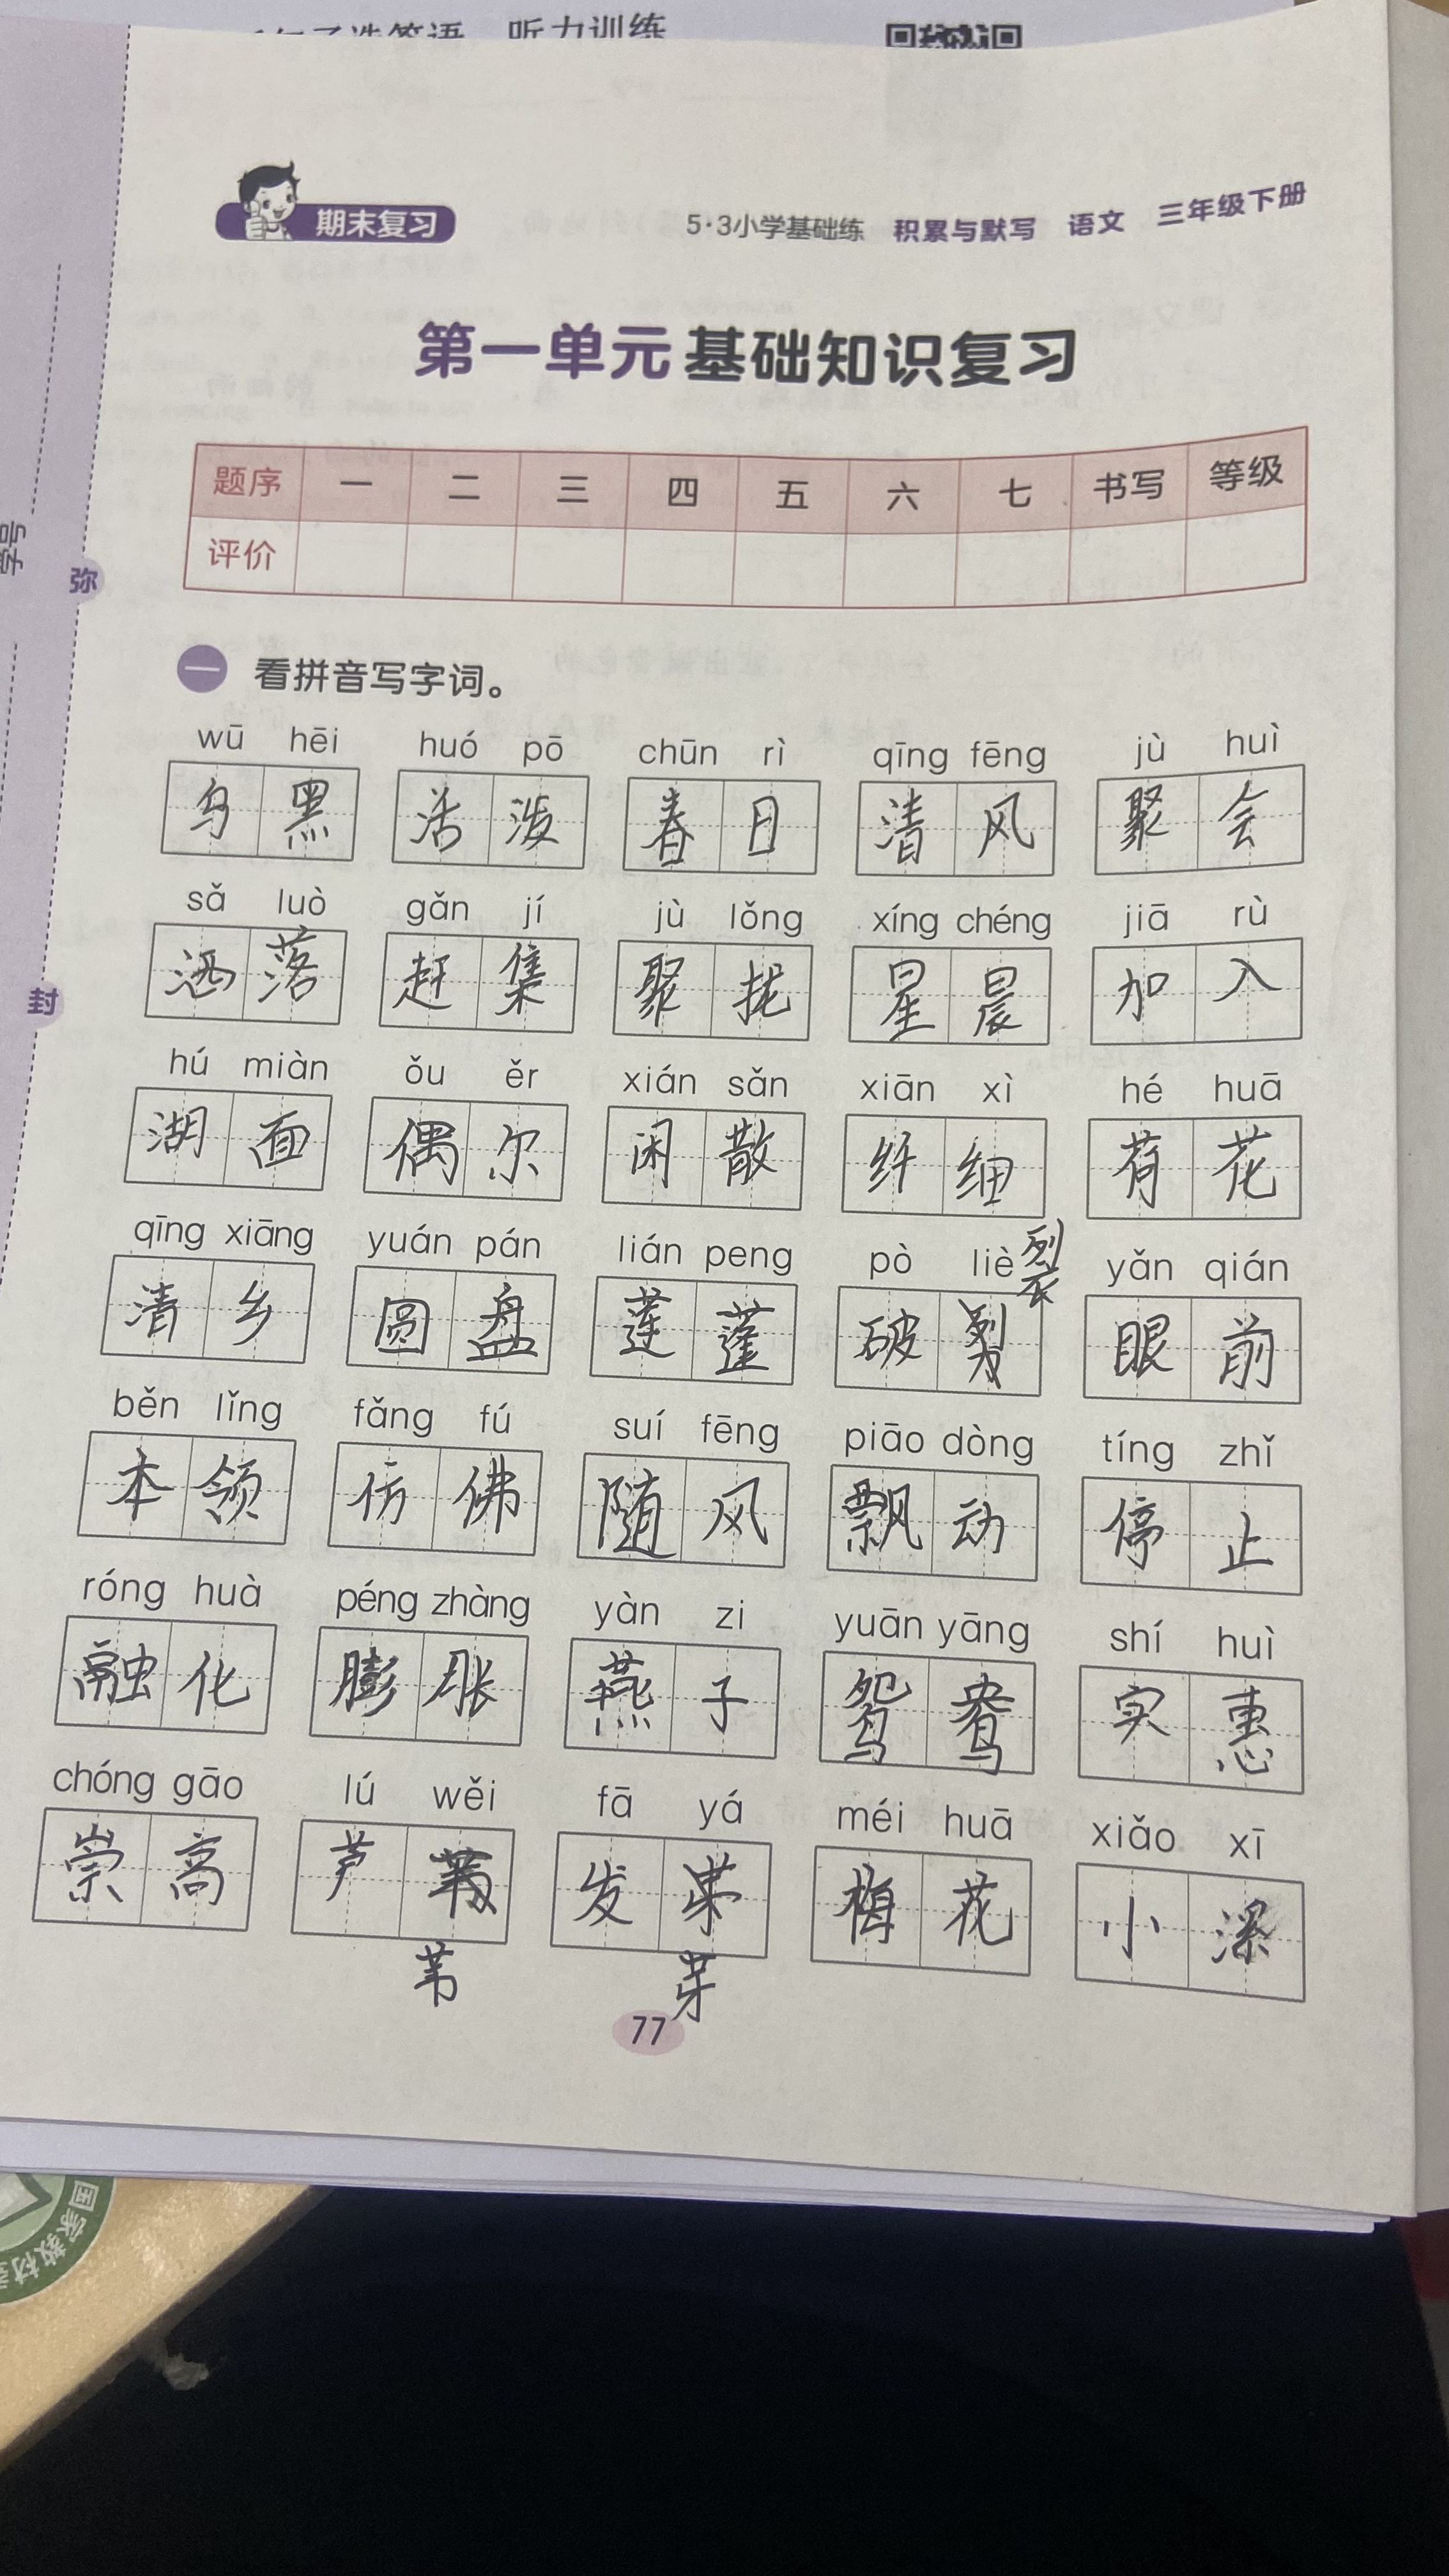 听力训练
期末复习
5·3小学基础练 积累与默写 语文 三年级下册
第一单元基础知识复习
题序 一 二 三 四 五 六 七 书写 等级
评价
学号
弥
封
一 看拼音写字词。
wū hēi huó pō chūn rì qīng fēng jù huì
乌黑 活泼 春日 清风 聚会
sǎ luò gǎn jí jù lǒng xíng chéng jiā rù
洒落 赶集 聚拢 星晨 加入
hú miàn ǒu ěr xián sǎn xiān xì hé huā
湖面 偶尔 闲散 纤细 荷花
qīng xiāng yuán pán lián peng pò liè yǎn qián
裂
清乡 圆盘 莲蓬 破 眼前
běn lǐng fǎng fú suí fēng piāo dòng tíng zhǐ
本领 仿佛 随风 飘动 停止
róng huà péng zhàng yàn zi yuān yāng shí huì
融化 膨胀 燕子 鸳鸯 实惠
chóng gāo lú wěi fā yá méi huā xiǎo xī
崇高 芦 发 梅花 小
苇 芽
77
国家教材